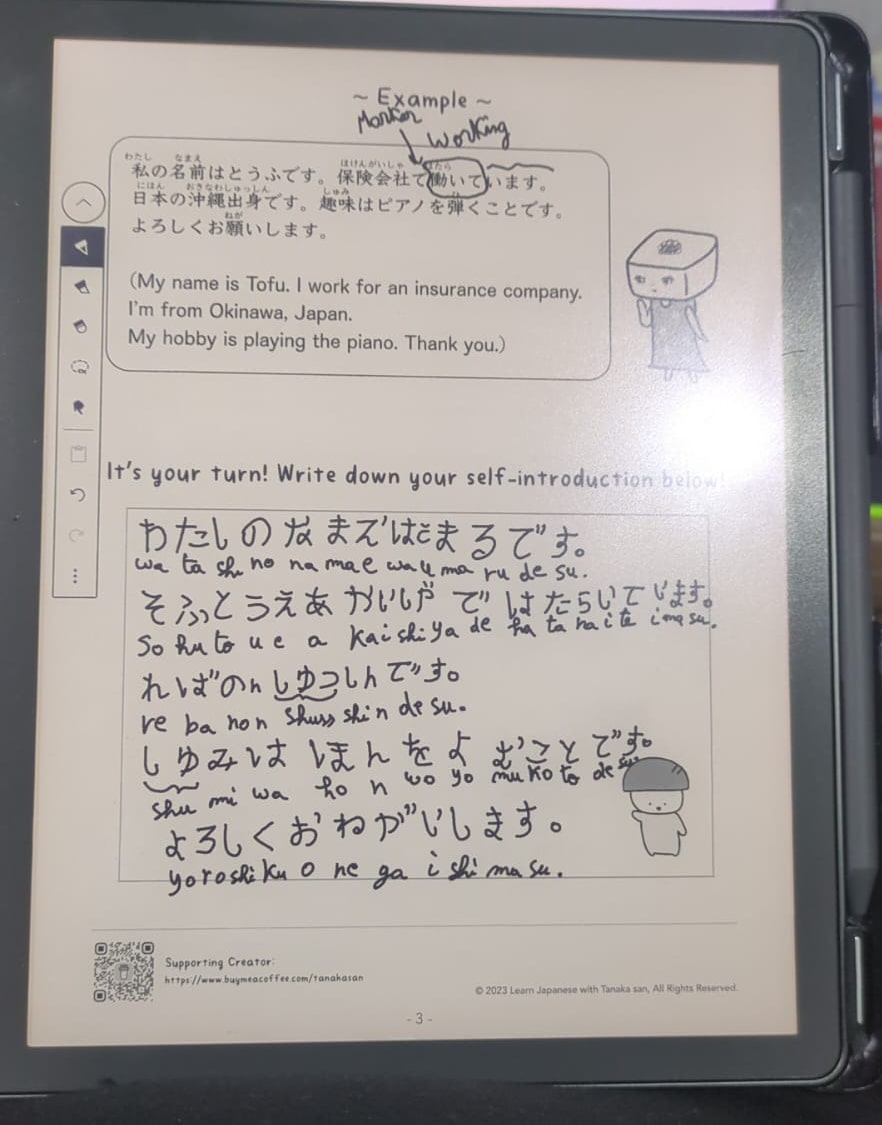 ~ Example ~
Marker
working
わたし なまえ ほけんがいしゃ はたら
私の名前はとうふです。保険会社で働いています。
にほん おきなわしゅっしん しゅみ ひ
日本の沖縄出身です。趣味はピアノを弾くことです。
ねが
よろしくお願いします。
(My name is Tofu. I work for an insurance company.
I'm from Okinawa, Japan.
My hobby is playing the piano. Thank you.)
It's your turn! Write down your self-introduction below!
わたしの なまえは まるです。
wa ta shi no na ma e wa u ma ru de su.
そふとうえあ かいしや で はたらいて います。
So hu to u e a kai shi ya de ha ta ra i te i ma su.
ればのん しゆつしんです。
re ba non shuss shin de su.
しゆみは ほんを よ むこと です。
shu mi wa ho n wo yo mu ko to de su.
よろしくおねがいします。
yoroshiku o ne ga i shi ma su.
Supporting Creator:
https://www.buymeacoffee.com/tanakasan
© 2023 Learn Japanese with Tanaka san, All Rights Reserved.
- 3 -